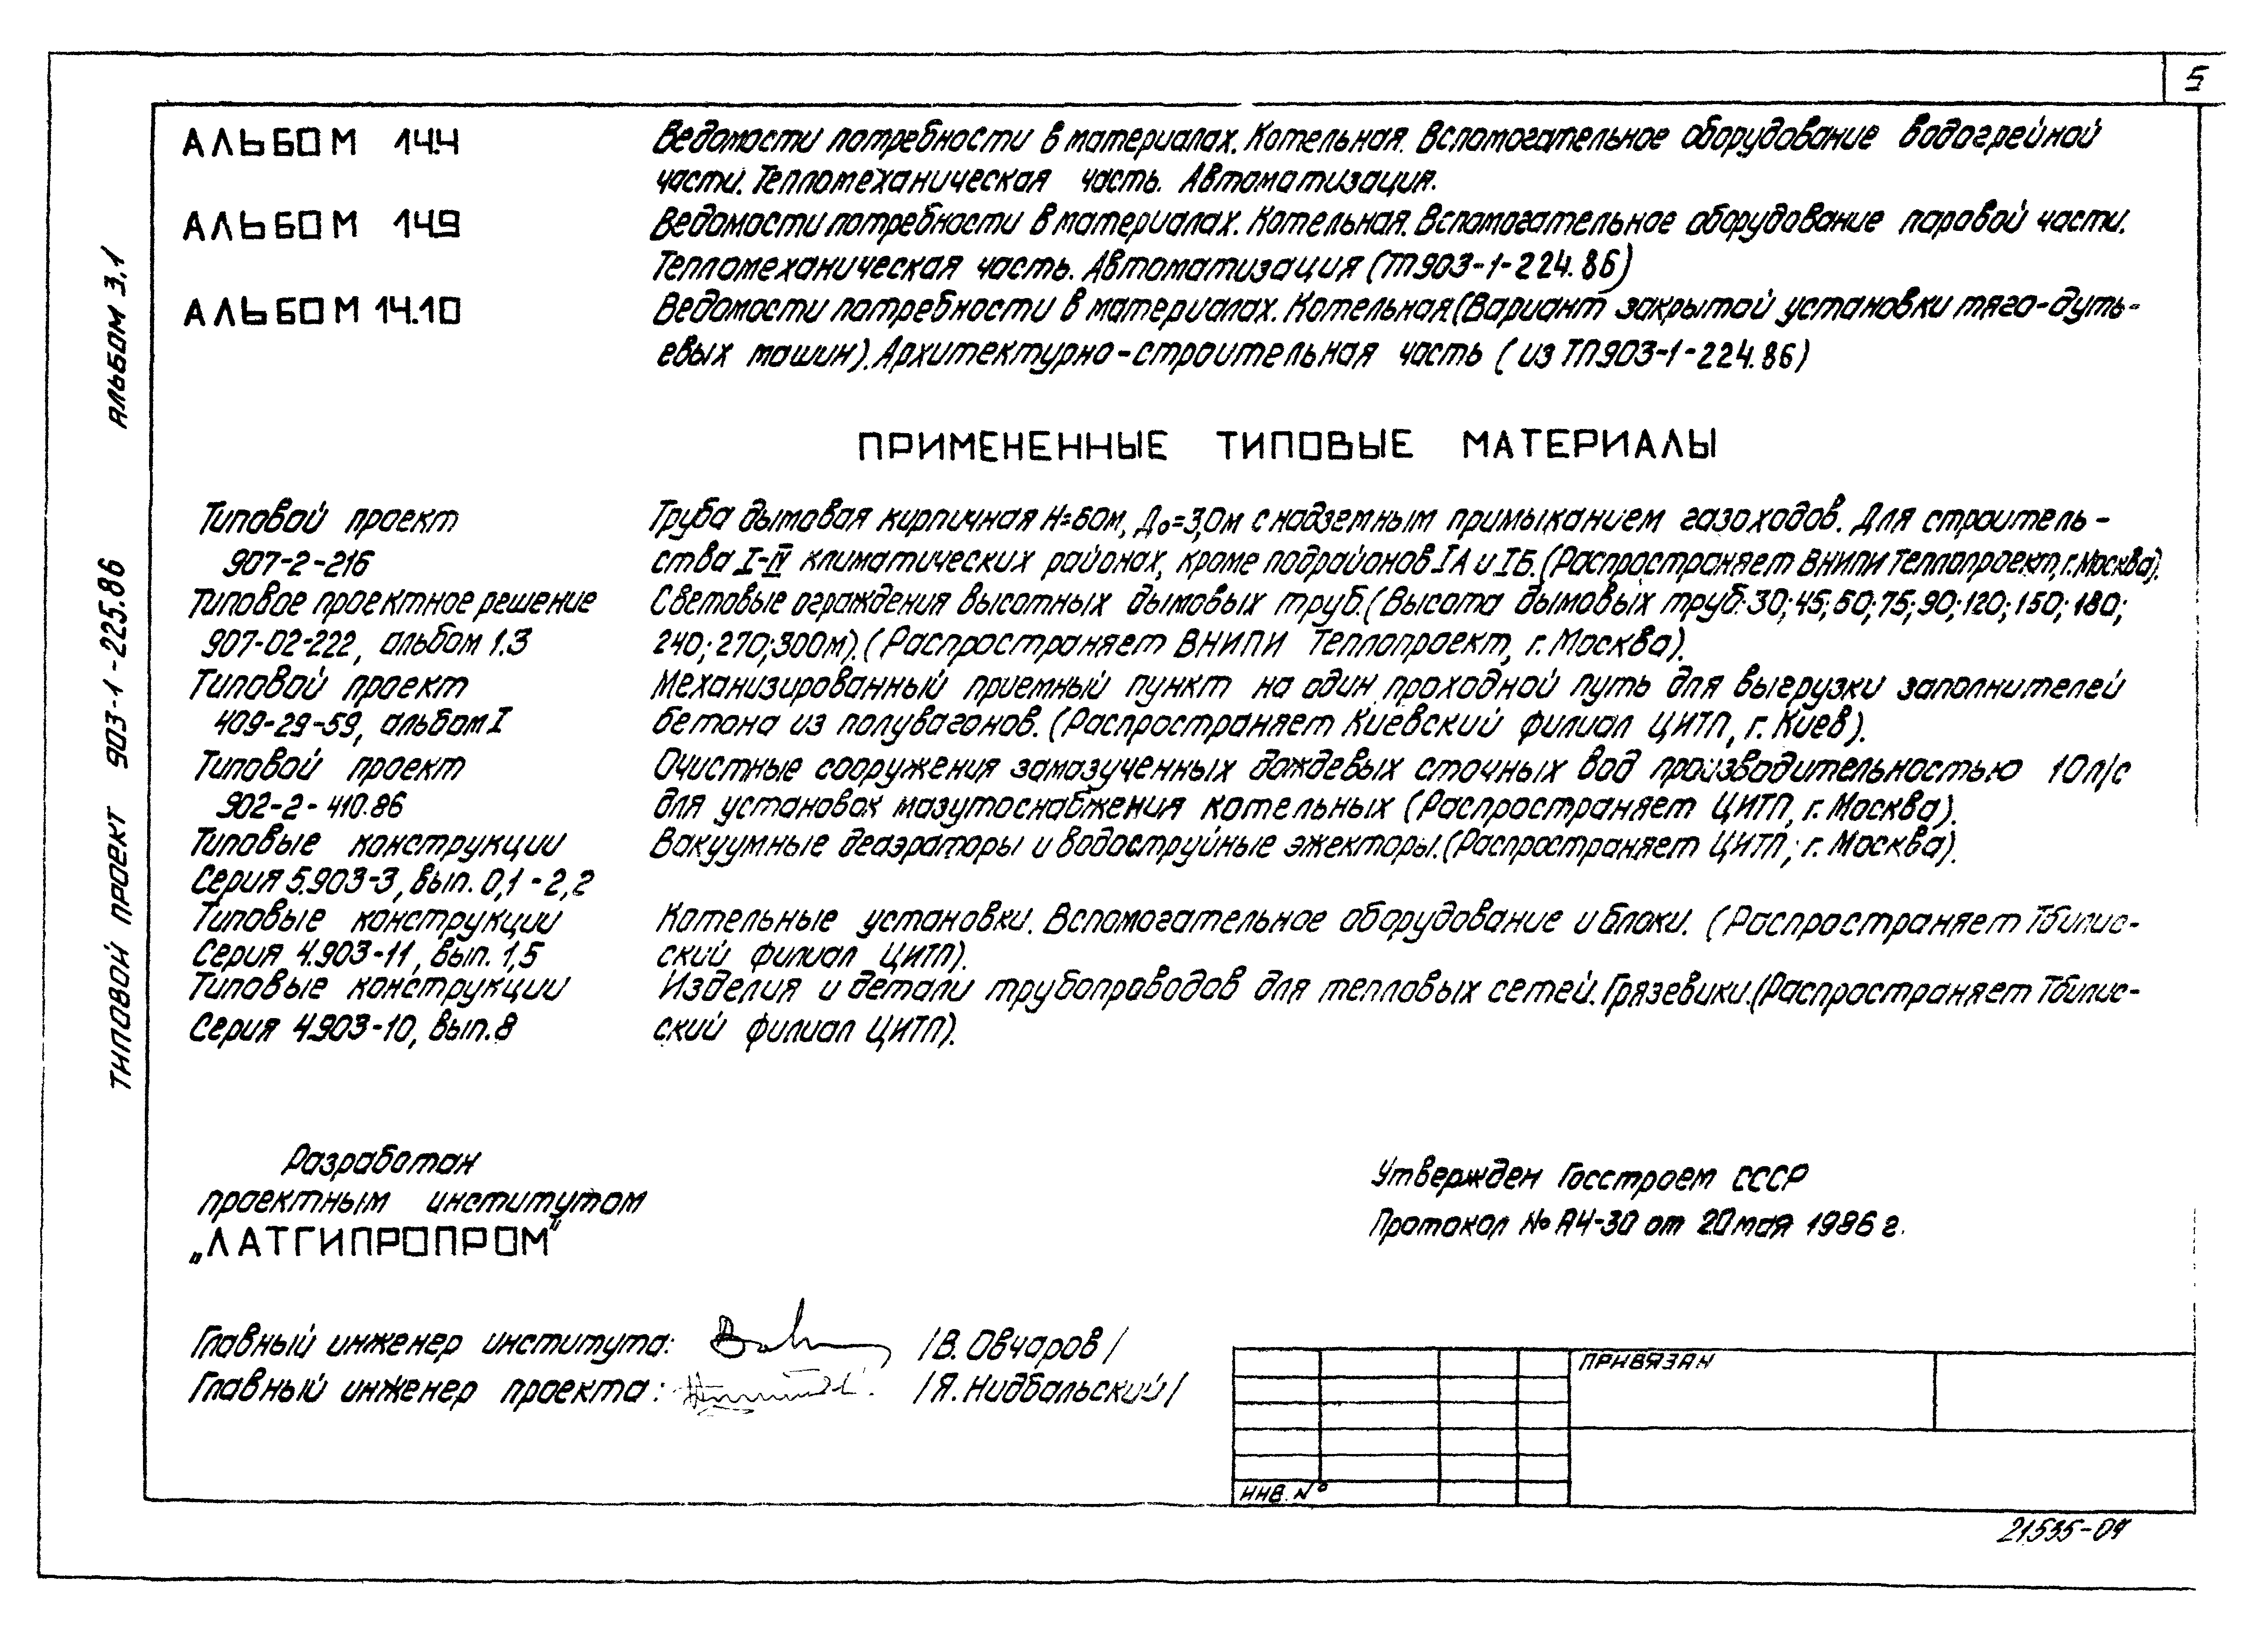 5
АЛЬБОМ 14.4 Ведомости потребности в материалах. Котельная. Вспомогательное оборудование водогрейной
части. Тепломеханическая часть. Автоматизация.
АЛЬБОМ 14.9 Ведомости потребности в материалах. Котельная. Вспомогательное оборудование паровой части.
Тепломеханическая часть. Автоматизация (ТП903-1-224.86)
АЛЬБОМ 14.10 Ведомости потребности в материалах. Котельная (Вариант закрытой установки тяго-дуть-
евых машин). Архитектурно-строительная часть (из ТП903-1-224.86)
ПРИМЕНЕННЫЕ ТИПОВЫЕ МАТЕРИАЛЫ
Типовой проект Труба дымовая кирпичная Н=60м, До=3,0м с надземным примыканием газоходов. Для строитель-
907-2-216 ства I-IV климатических районах, кроме подрайонов IА и IБ. (Распространяет ВНИПИ Теплопроект, г. Москва).
Типовое проектное решение Световые ограждения высотных дымовых труб. (Высота дымовых труб: 30; 45; 60; 75; 90; 120; 150; 180;
907-02-222, альбом 1.3 240; 270; 300м). (Распространяет ВНИПИ Теплопроект, г. Москва).
Типовой проект Механизированный приемный пункт на один проходной путь для выгрузки заполнителей
409-29-59, альбом I бетона из полувагонов. (Распространяет Киевский филиал ЦИТП, г. Киев).
Типовой проект Очистные сооружения замазученных дождевых сточных вод производительностью 10 л/с
902-2-410.86 для установок мазутоснабжения котельных (Распространяет ЦИТП, г. Москва).
Типовые конструкции Вакуумные деаэраторы и водоструйные эжекторы. (Распространяет ЦИТП, г. Москва).
Серия 5.903-3, вып. 0,1-2,2
Типовые конструкции Котельные установки. Вспомогательное оборудование и блоки. (Распространяет Тбилис-
Серия 4.903-11, вып. 1,5 ский филиал ЦИТП).
Типовые конструкции Изделия и детали трубопроводов для тепловых сетей. Грязевики. (Распространяет Тбилис-
Серия 4.903-10, вып. 8 ский филиал ЦИТП).
Разработан
проектным институтом
„ЛАТГИПРОПРОМ"
Утвержден Госстроем СССР
Протокол № АЧ-30 от 20 мая 1986 г.
Главный инженер института: /В. Овчаров/
Главный инженер проекта: /Я. Нидбальский/
ПРИВЯЗАН
ИНВ. №
21535-04
ТИПОВОЙ ПРОЕКТ 903-1-225.86 АЛЬБОМ 3.1